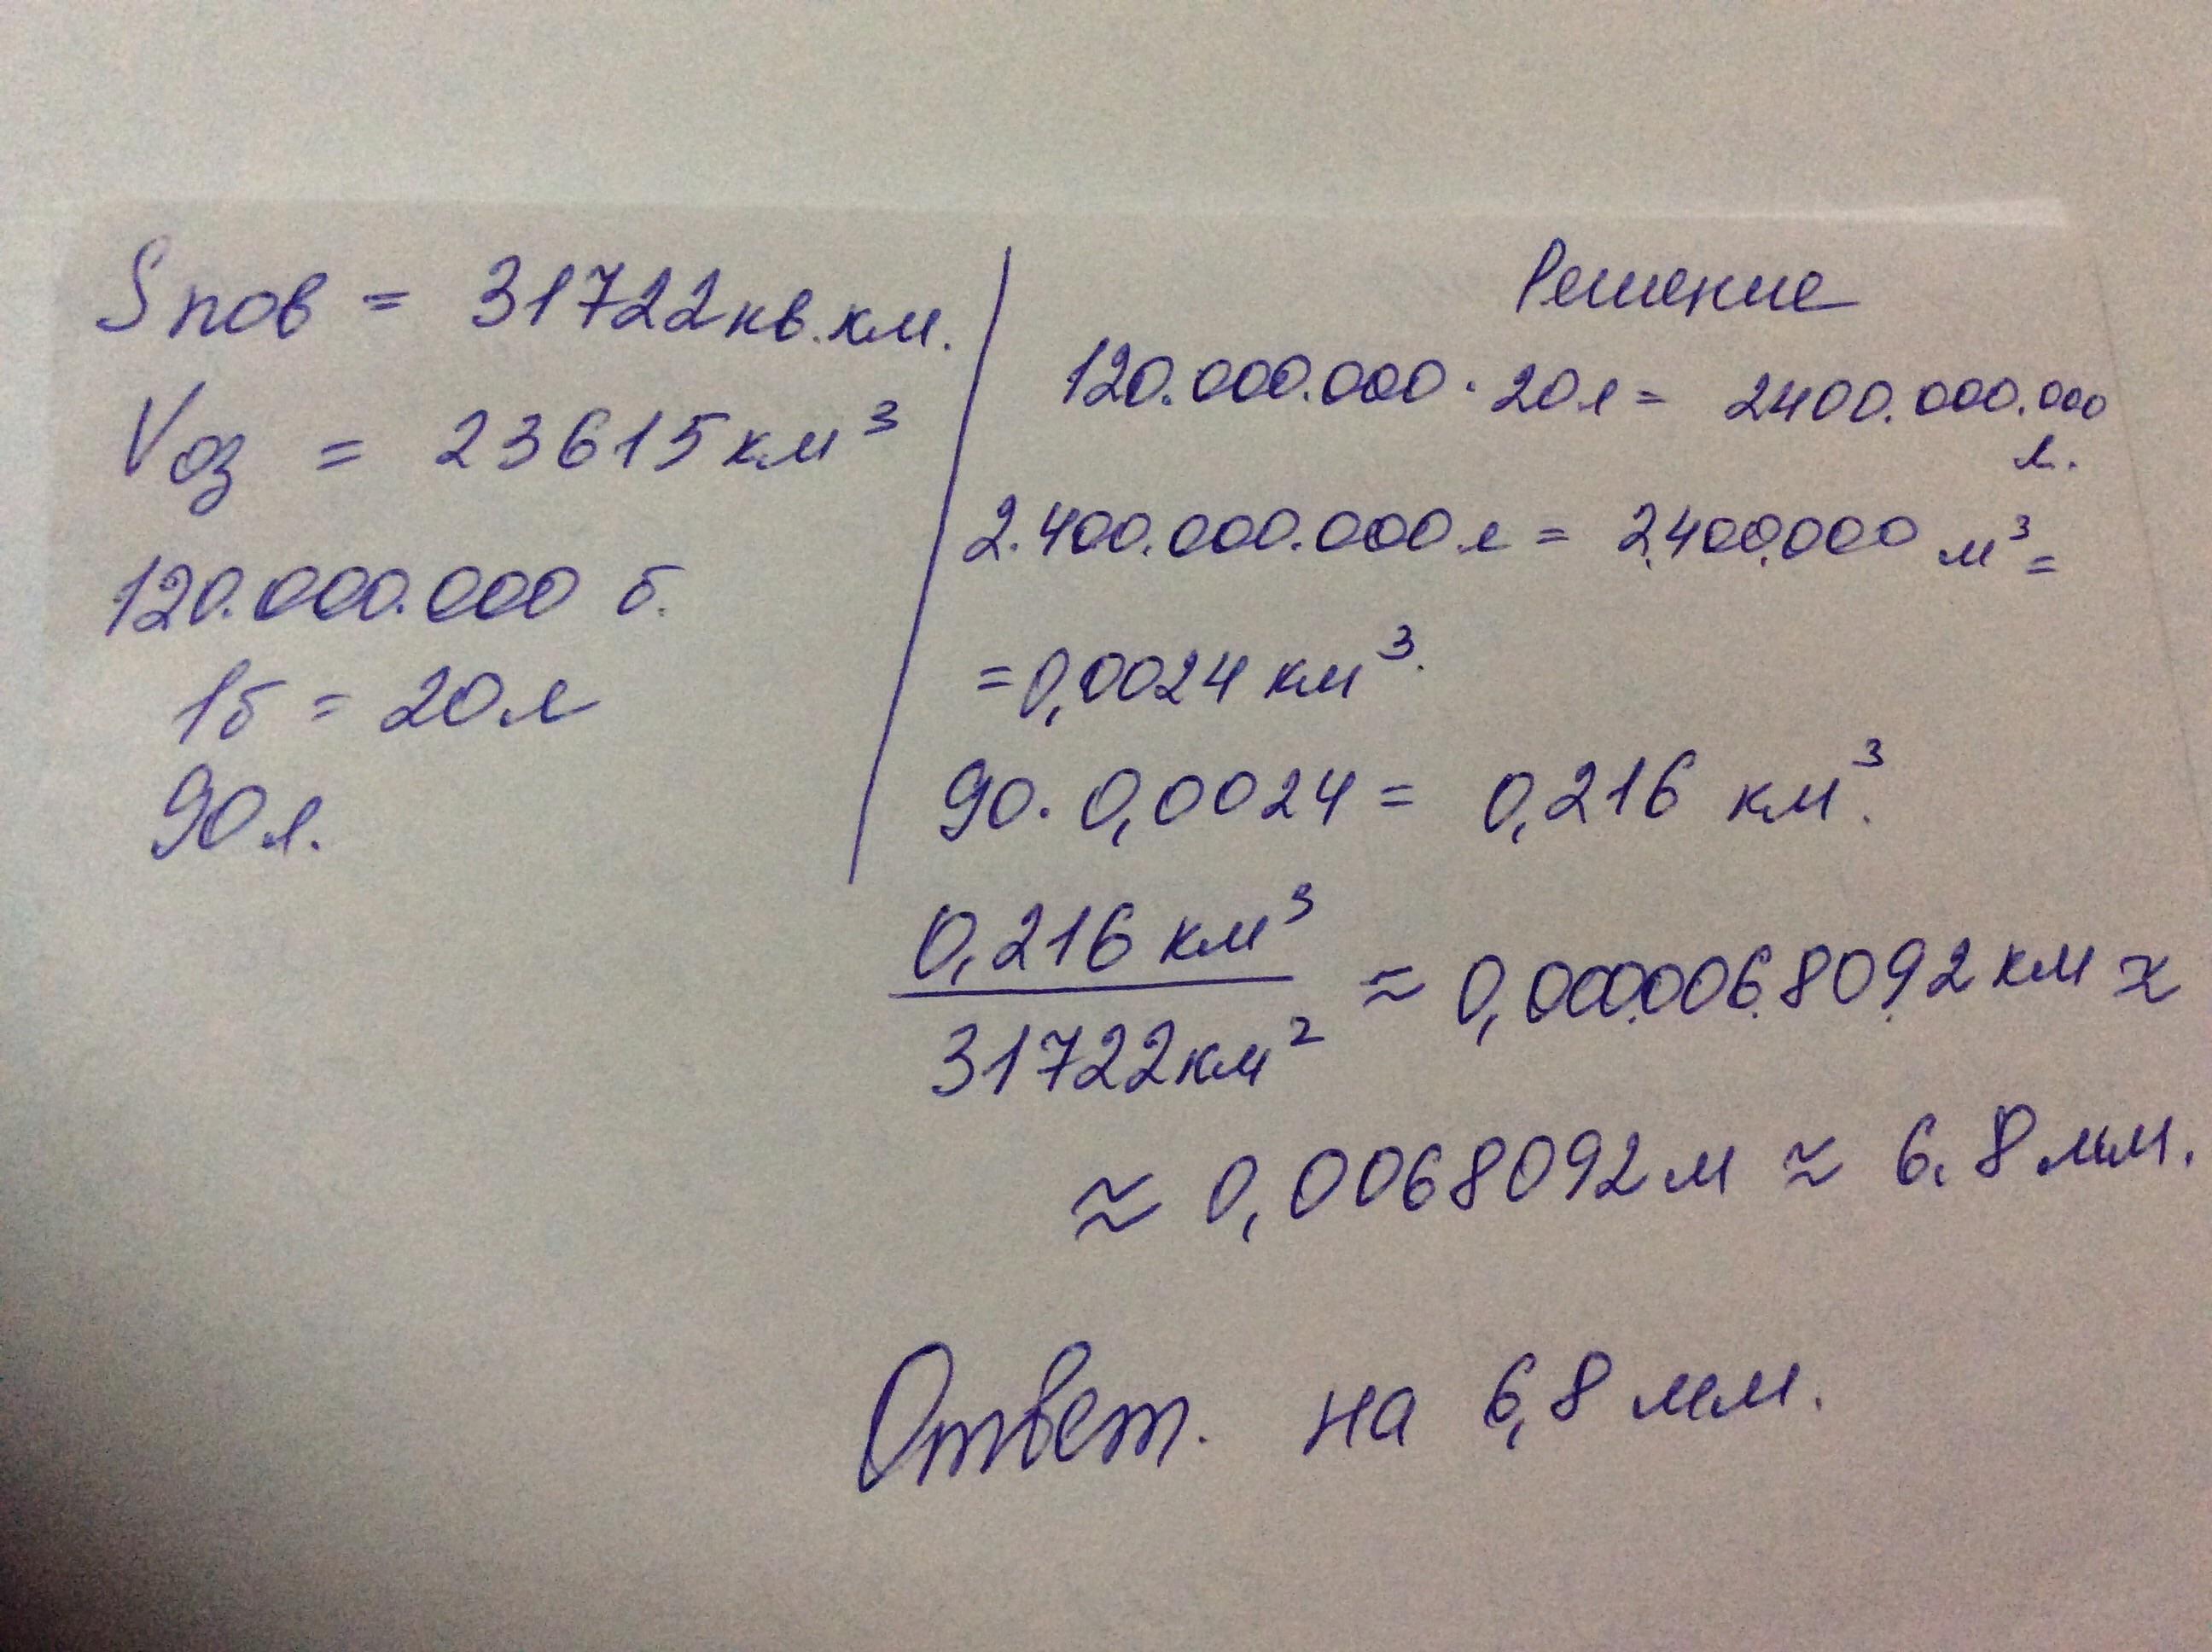 Sпов = 31722 кв.км.
Vоз = 23615 км³
120.000.000 б.
1б = 20 л
90 л.
Решение
120.000.000 · 20л = 2400.000.000
л.
2.400.000.000 л = 2.400.000 м³ =
= 0,0024 км³.
90. 0,0024 = 0,216 км³.
0,216 км³
31722 км²
≈ 0,0000068092 км ≈
≈ 0,0068092 м ≈ 6.8 мм.
Ответ. на 6,8 мм.